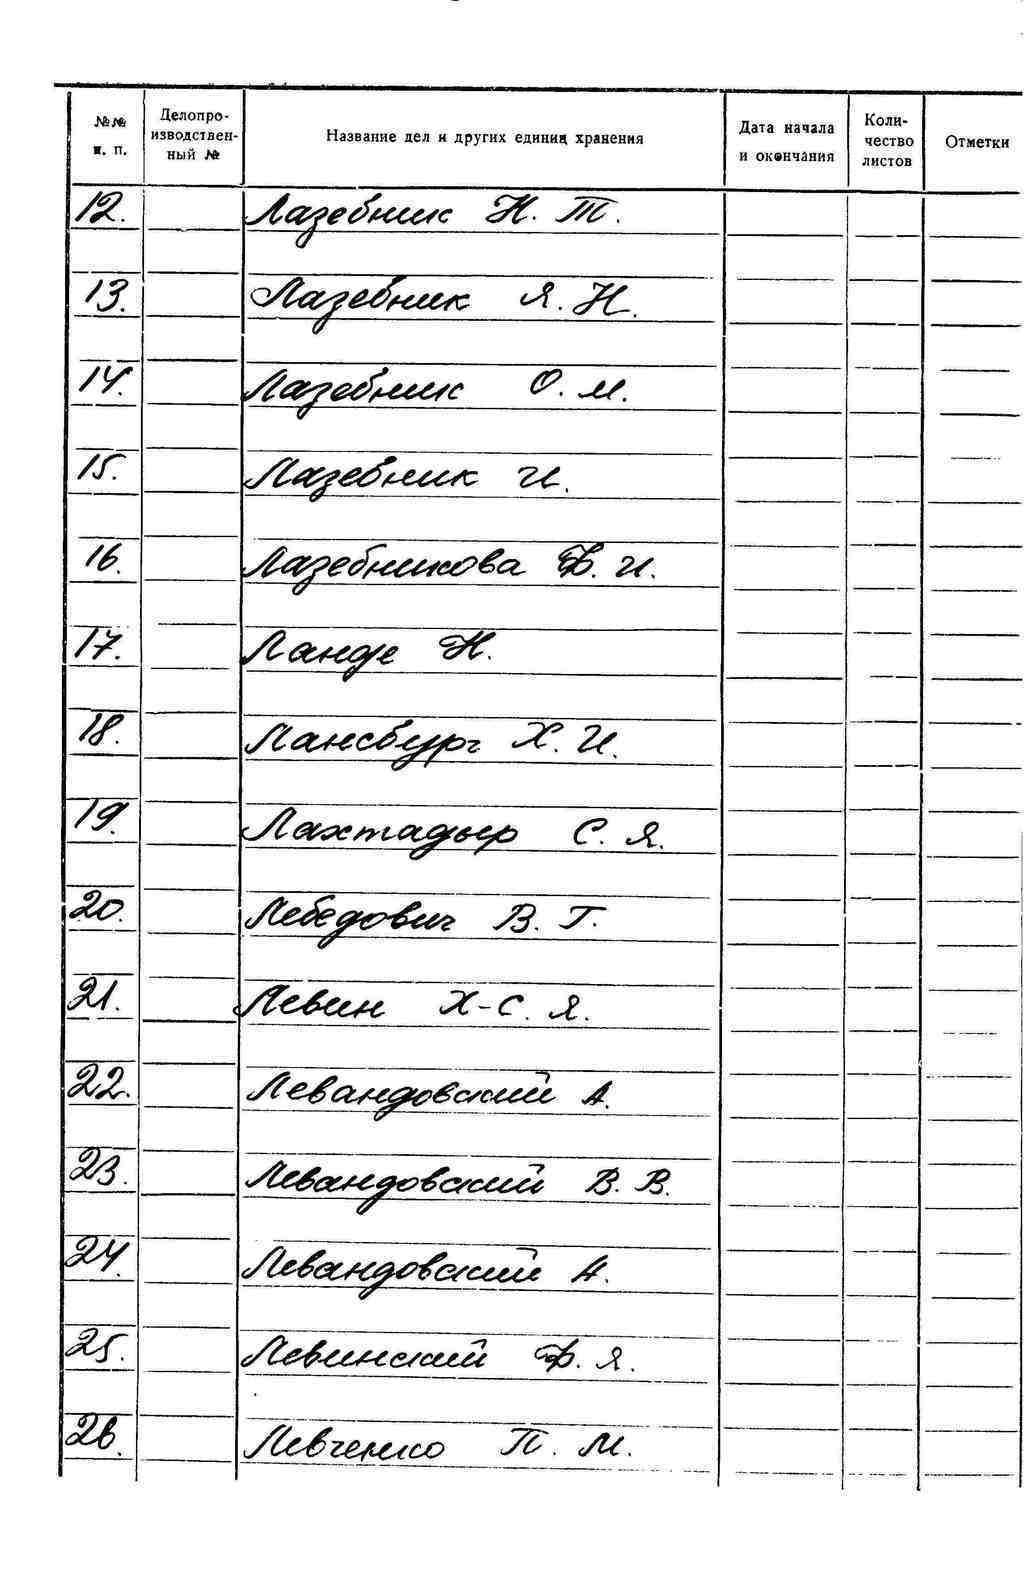 №№ п. п. Делопроизводственный № Название дел и других единиц хранения Дата начала и окончания Количество листов Отметки
12. Лазебник Н. Т.
13. Лазебник Я. Н.
14. Лазебник О. М.
15. Лазебник И.
16. Лазебникова Ф. И.
17. Ланде Н.
18. Лансбург Х. И.
19. Лахтадыр С. Я.
20. Лебедович В. Г.
21. Левин Х-С. Я.
22. Левандовский А.
23. Левандовский В. В.
24. Левандовский А.
25. Левинский Ф. Я.
26. Левченко П. М.